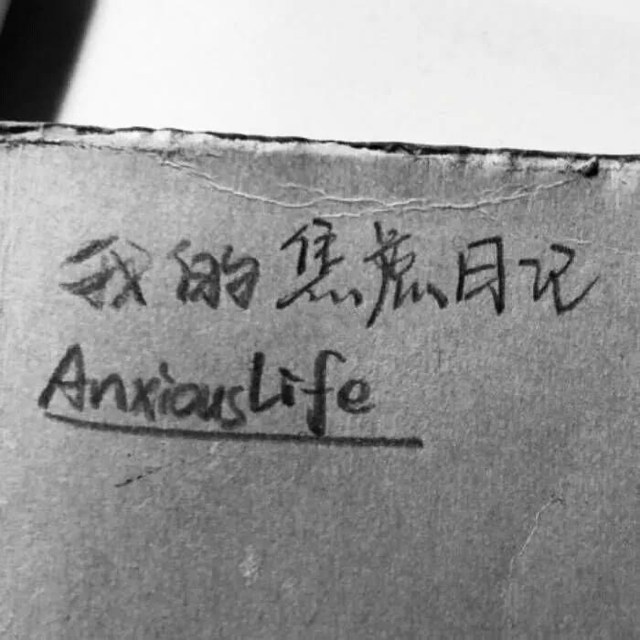 我的焦虑日记
AnxiousLife